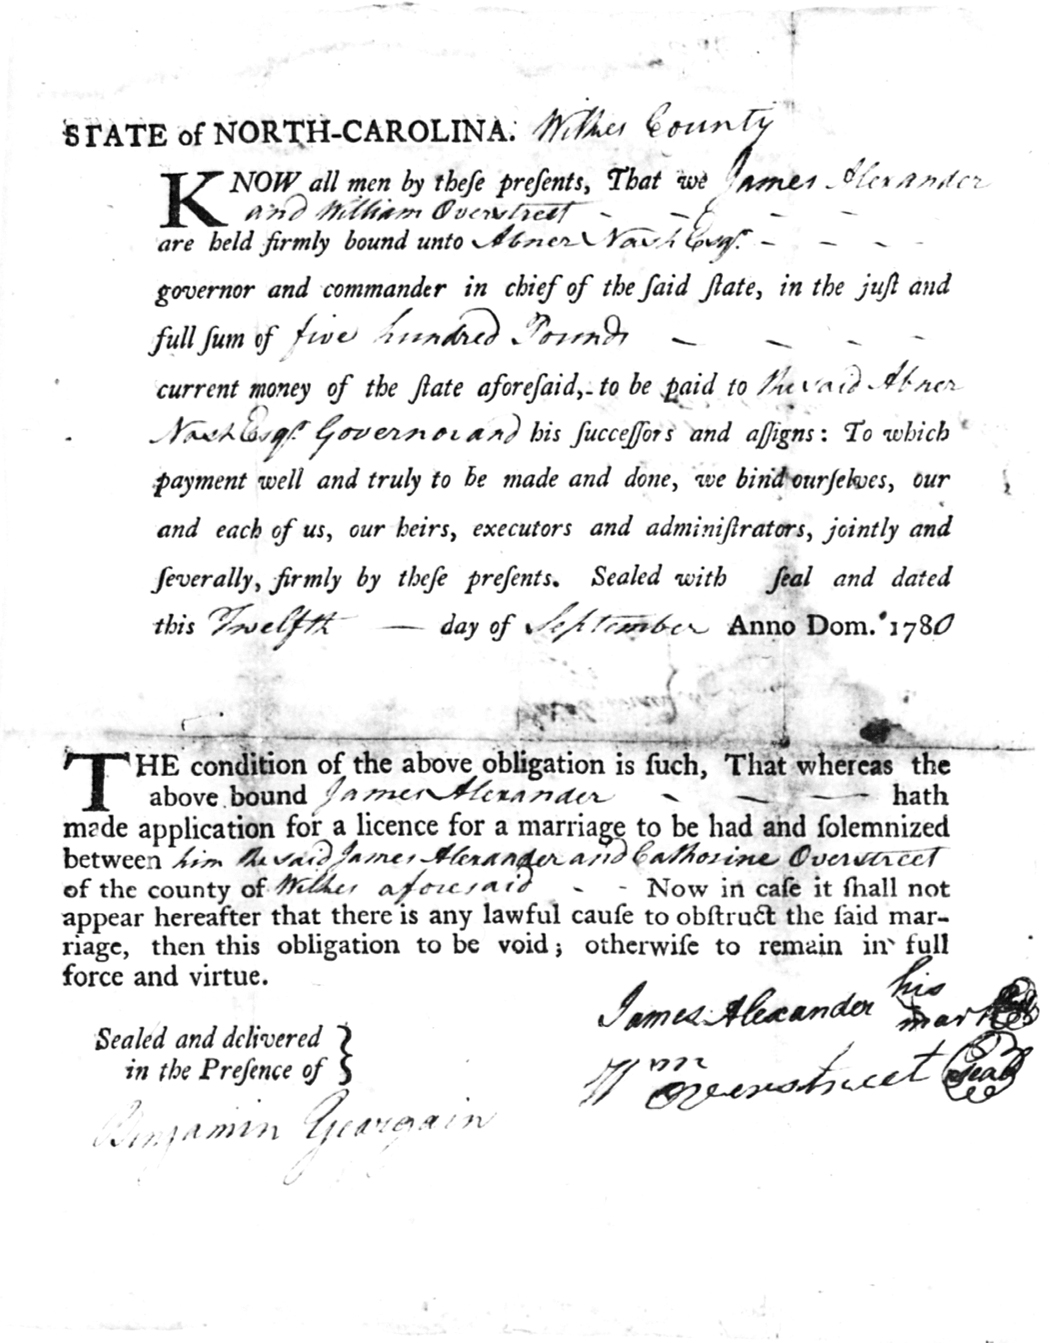 STATE of NORTH-CAROLINA. Wilkes County
KNOW all men by theſe preſents, That we James Alexander
and William Overstreet - - - -
are held firmly bound unto Abner Nash Esqr. - - - -
governor and commander in chief of the ſaid ſtate, in the juſt and
full ſum of five hundred Pounds - - - -
current money of the ſtate aforeſaid, to be paid to the said Abner
Nash Esqr. Governor and his ſucceſſors and aſſigns: To which
payment well and truly to be made and done, we bind ourſelves, our
and each of us, our heirs, executors and adminiſtrators, jointly and
ſeverally, firmly by theſe preſents. Sealed with ſeal and dated
this Twelfth — day of September Anno Dom. 1780
THE condition of the above obligation is ſuch, That whereas the
above bound James Alexander - - — hath
made application for a licence for a marriage to be had and ſolemnized
between him the said James Alexander and Cathorine Overstreet
of the county of Wilkes aforesaid - - Now in caſe it ſhall not
appear hereafter that there is any lawful cauſe to obſtruct the ſaid mar-
riage, then this obligation to be void; otherwiſe to remain in full
force and virtue.
James Alexander his
mark
Sealed and delivered
in the Preſence of
Wm Overstreet Seal
Benjamin